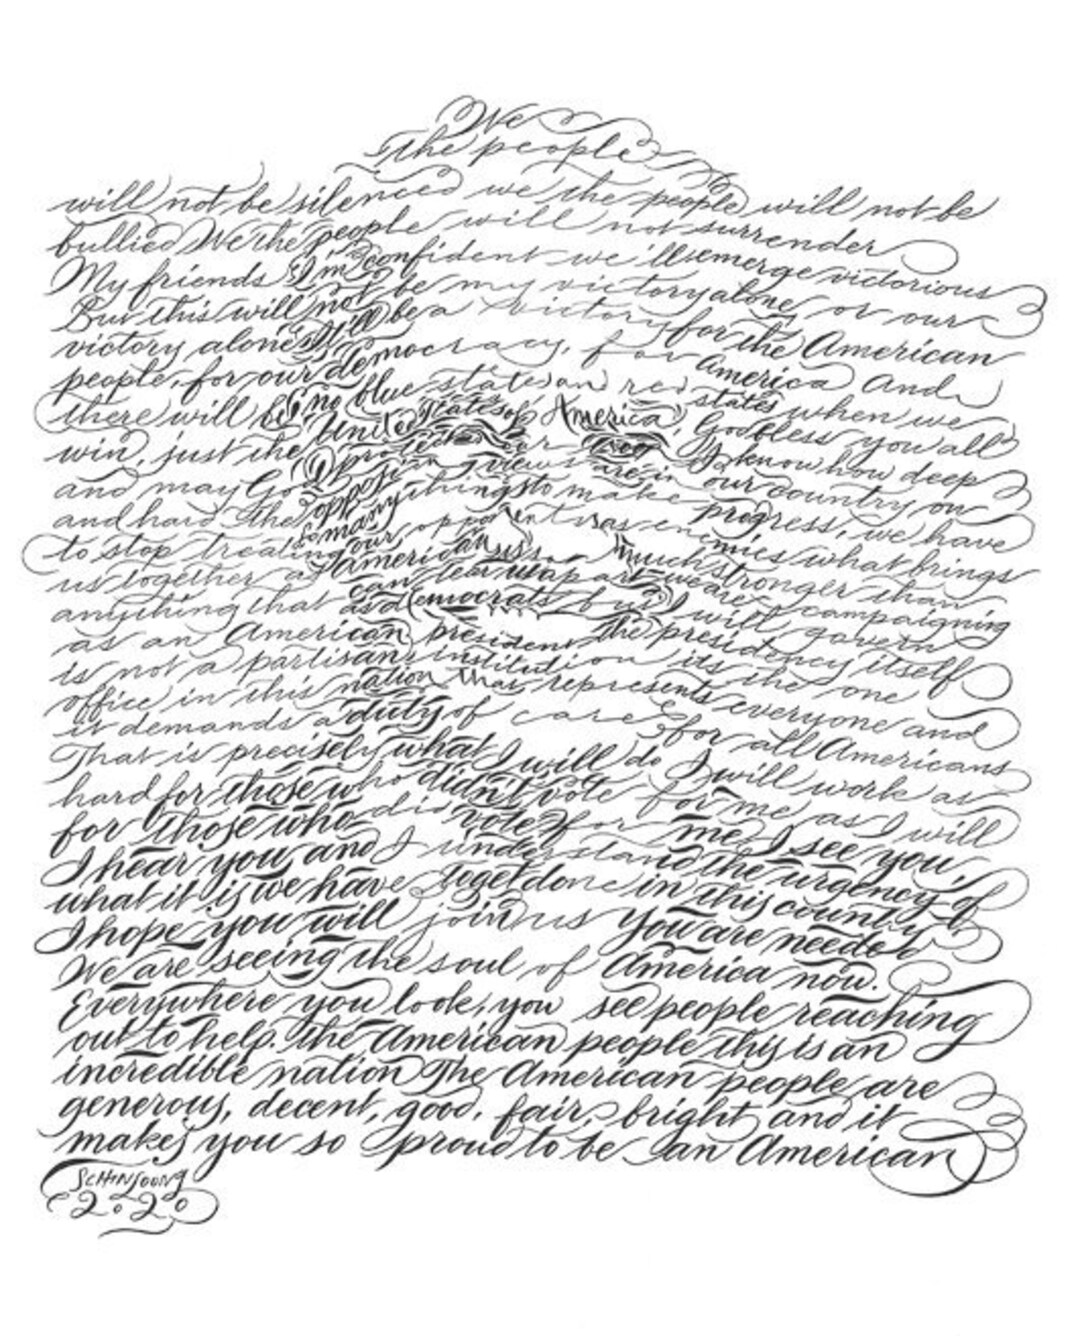 We
the people
will not be silenced we the people will not be
bullied We the people will not surrender
My friends I'm confident we'll emerge victorious
But this will not be my victory alone or our
victory alone It'll be a victory for the American
people, for our democracy, for America And
there will be no blue states and red states when we
win, just the United States of America God bless you all
and may God protect our I know how deep
and hard the opposing views are in our country on
so many things to make progress, we have
to stop treating our opponents as enemies what brings
us together as Americans is so much stronger than
anything that can tear us apart we are campaigning
as a democrats but I will govern
as an American president The presidency itself
is not a partisan institution its the one
office in this nation that represents everyone and
it demands a duty of care for all Americans
That is precisely what I will do I will work as
hard for those who didn't vote for me as I will
for those who did vote for me I see you,
I hear you and I understand the urgency of
what it is we have to get done in this country
I hope you will join us you are needed
We are seeing the soul of America now.
Everywhere you look, you see people reaching
out to help. The American people this is an
incredible nation The American people are
generous, decent, good, fair, bright and it
makes you so proud to be an American
SCHINLOONG
2.20